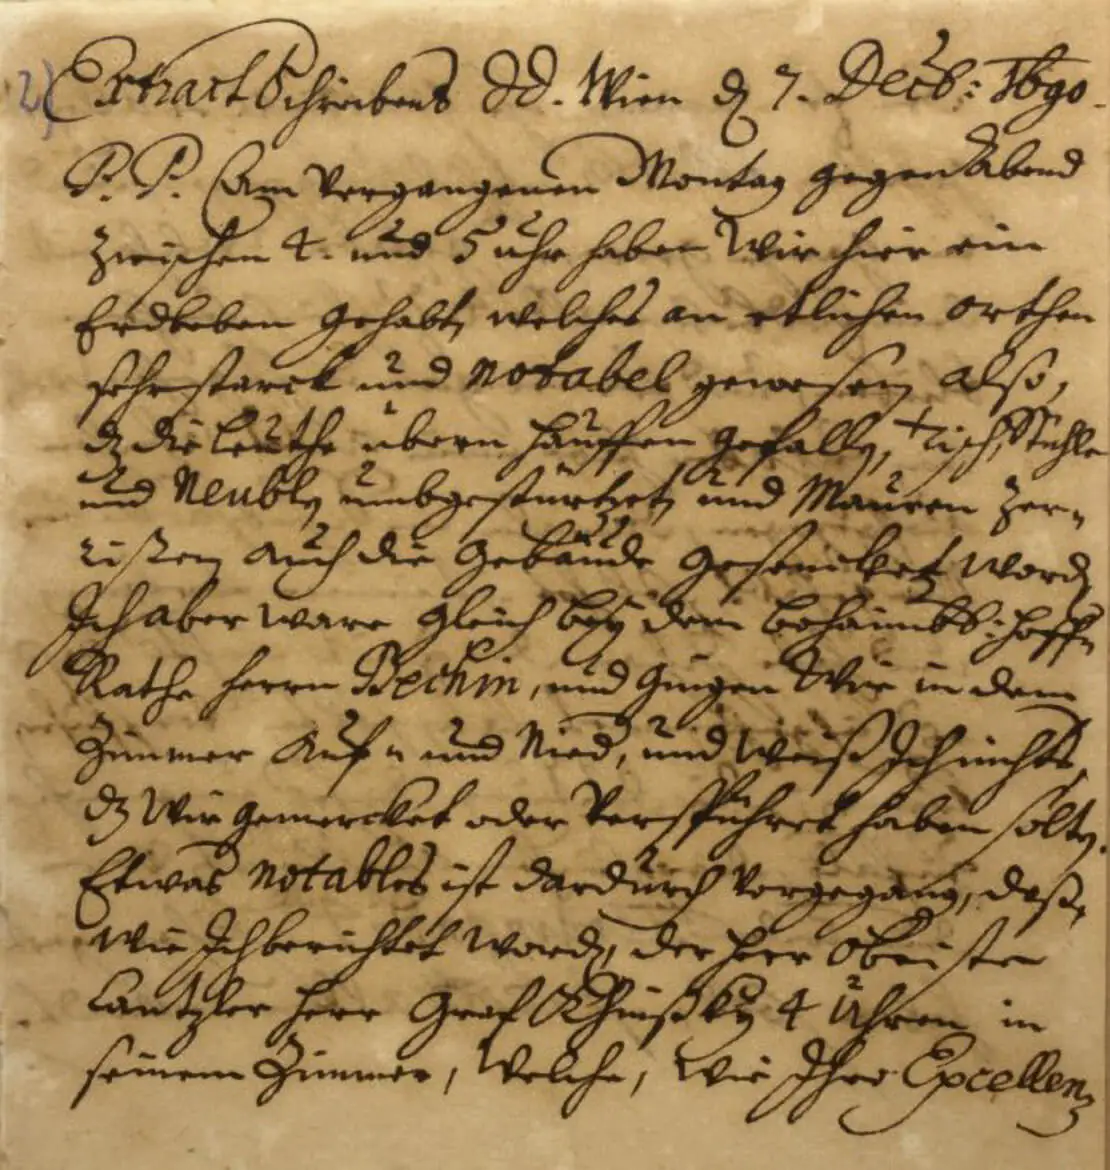 2)
Extract Schreibens dd. Wien dʒ 7. Decb: 1690.
P. P. Am Vergangenen Montag gegen Abend
zwischen 4. und 5 uhr haben Wir hier ein
Erdbeben gehabt, welches an etlichen orthen
sehr starck und notabel gewesen, also,
dʒ die leüthe übern hauffen gefallen, tisch, Stühle
und Neubln umbgestürtzet, und Mauren Zer-
rissen, auch die Gebäude gesencket worden
Ich aber ware gleich beÿ dem böhaimbs: hoff-
Rathe herrn Bechin, und gingen Wir in dem
Zimmer auf- und Nied, und weiß Ich nicht,
dʒ Wir gemercket oder Verspühret haben solten.
Etwas notables ist dardurch vorgegangen, daß,
wie Ich berichtet worden, der herr Obrister
Cantzler herr Graf Khinßkÿ 4 Uhren in
seinem Zimmer, welche, wie Ihro Excellenz